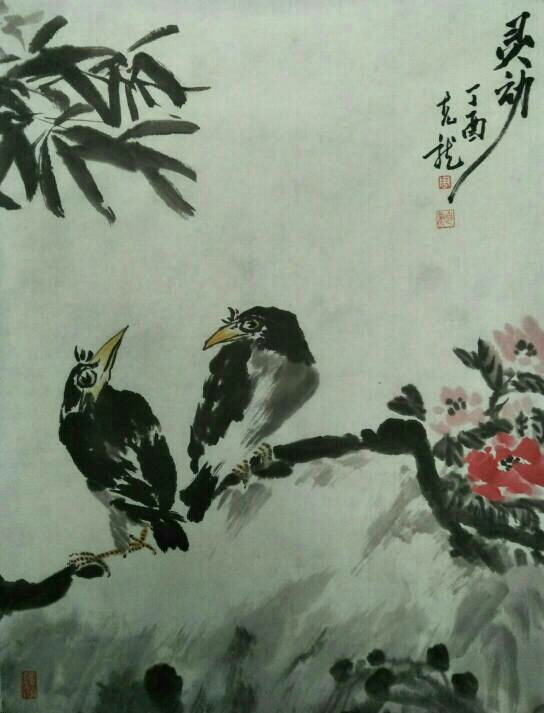 灵动
丁酉
克龙